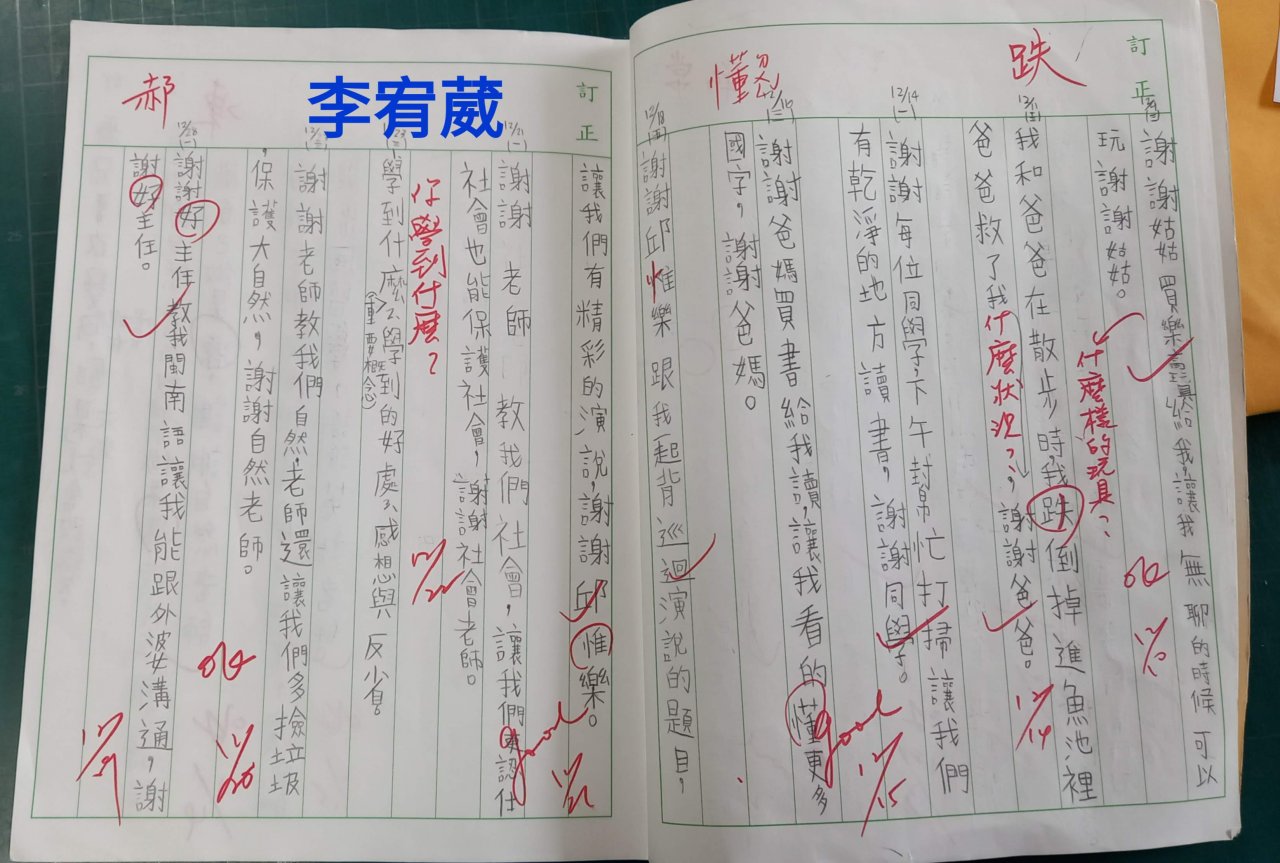 訂正
跌
懂
12/9
謝謝姑姑買樂高玩具給我,讓我無聊的時候可以
玩謝謝姑姑。
什麼樣的玩具?
ok 12/10
12/11
我和爸爸在散步時,我跌倒掉進魚池裡
爸爸救了我,謝謝爸爸。
什麼狀況?
12/14
12/14
(一)
謝謝每位同學,下午幫忙打掃讓我們
有乾淨的地方讀書,謝謝同學。
good 12/15
謝謝爸媽買書給我讀,讓我看的懂更多
國字,謝謝爸媽。
12/18
謝謝邱惟樂跟我起背巡迴演說的題目,
訂正
李宥葳
郝
讓我們有精彩的演說,謝謝邱惟樂。
good 12/21
12/21
(一)
謝謝老師教我們社會,讓我們更認任
社會也能保護社會,謝謝社會老師。
你學到什麼?
12/22
學到什麼(重要概念)學到的好處感想與反省。
謝謝老師教我們自然,老師還讓我們多撿垃圾
,保護大自然,謝謝自然老師。
ok
12/28
(一)
謝謝好主任教我閩南語讓我能跟外婆溝通,謝
謝好主任。
12/29